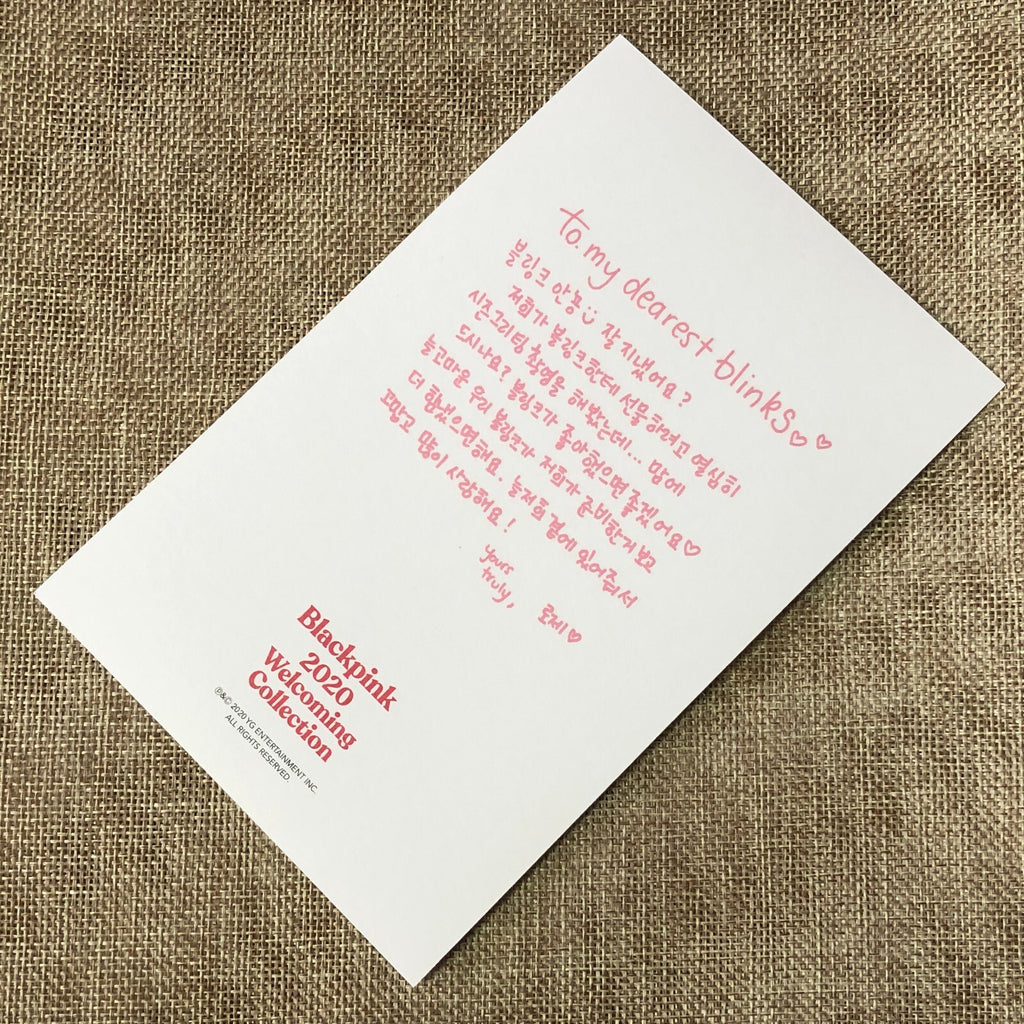 to. my dearest blinks ♡ ♡
블링크 안뇽 ¨̮ 잘 지냈어요?
저희가 블링크한테 선물하려고 열심히
시즌그리팅 촬영을 해봤는데... 맘에
드시나요? 블링크가 좋아했으면 좋겠어요♡
늘 고마운 우리 블링크가 저희가 준비한거 보고
더 힘냈으면해요. 늘 저희 곁에 있어줘서
고맙고 많이 사랑해요!
yours
truly, 로제♡
Blackpink
2020
Welcoming
Collection
Ⓟ&© 2020 YG ENTERTAINMENT INC.
ALL RIGHTS RESERVED.